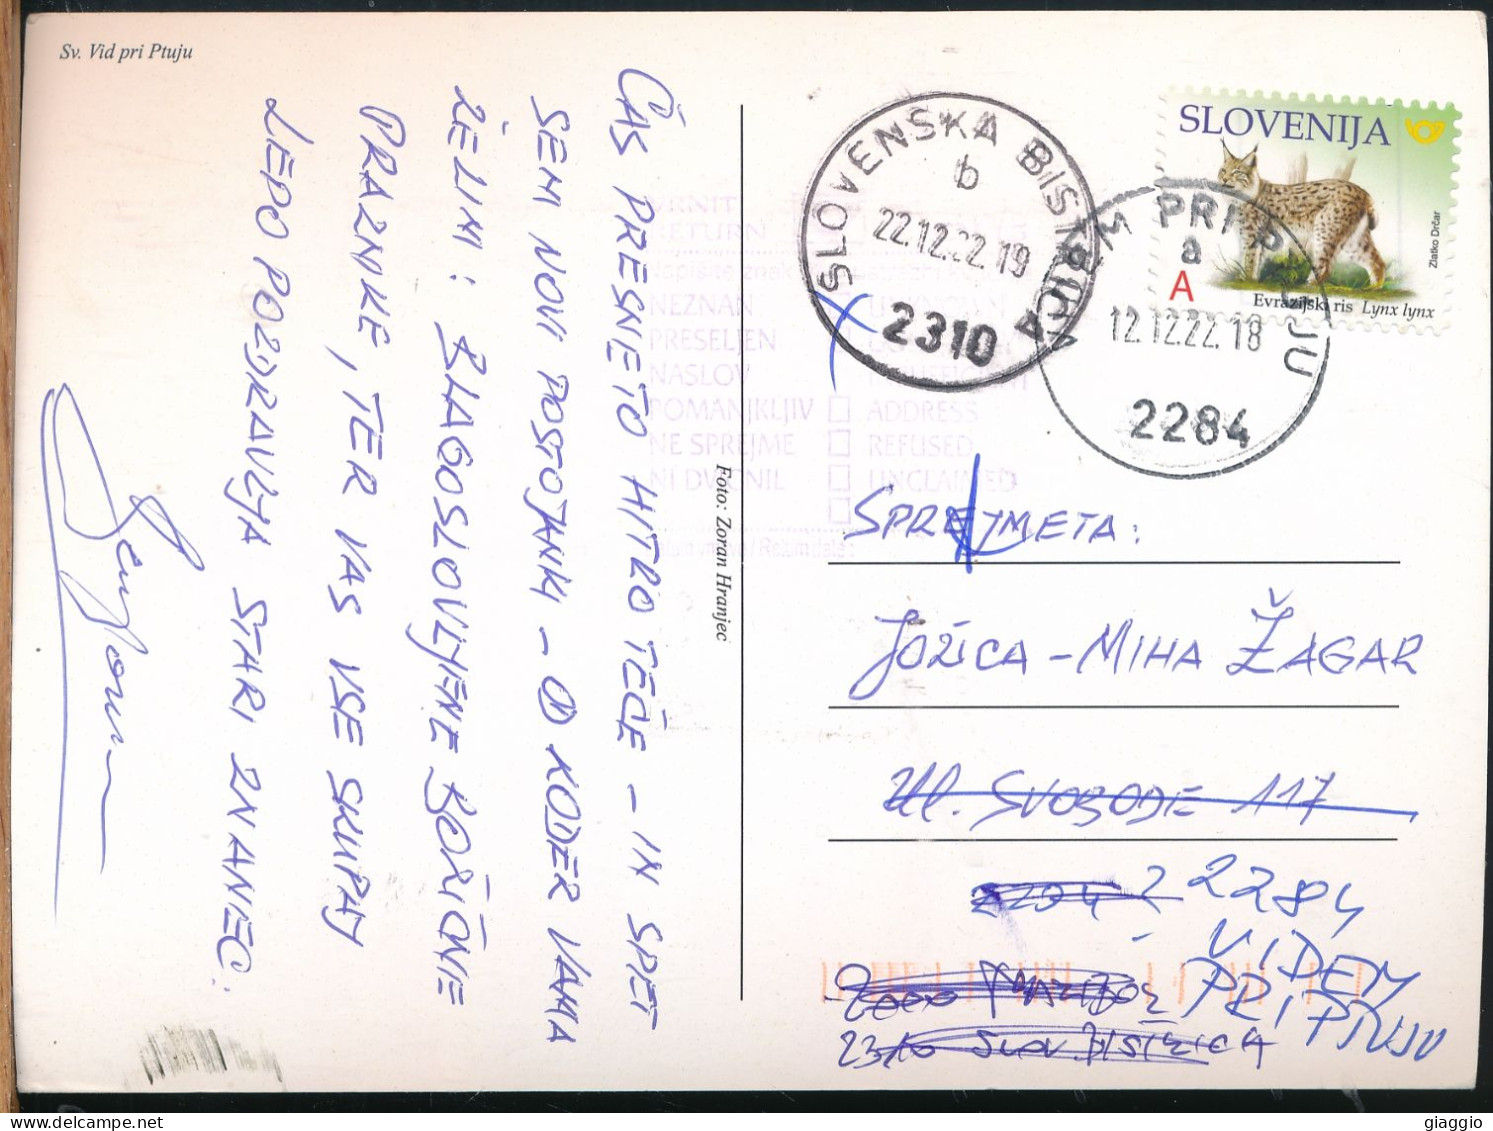 Sv. Vid pri Ptuju
ČAS PRESNETO HITRO TEČE – IN SPET
SEM NOVI POSTOJANKI – OD KODER VAMA
ŽELIM: BLAGOSLOVLJENE BOŽIČNE
PRAZNIKE, TER VAS VSE SKUPAJ
LEPO POZDRAVLJA STARI ZNANEC.
Foto: Zoran Hranjec
SLOVENSKA BISTRICA
b
22.12.22.19
2310
SLOVENIJA
A
Evrazijski ris Lynx lynx
Zlatko Drčar
M PRI PTUJU
a
12.12.22.18
2284
VRNITI
RETURN
NEZNAN UNKNOWN
PRESELJEN
NASLOV INSUFFICIENT
POMANJKLJIV ADDRESS
NE SPREJME REFUSED
NI DVIGNIL UNCLAIMED
Datum vrnitve / Return date:
SPREJMETA:
JOŽICA – MIHA ŽAGAR
Ul. SVOBODE 117
2284
VIDEM
PRI PTUJU
2000 MARIBOR
2310 SLOV. BISTRICA
giaggio